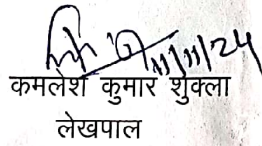 11/11/24
कमलेश कुमार शुक्ला
लेखपाल